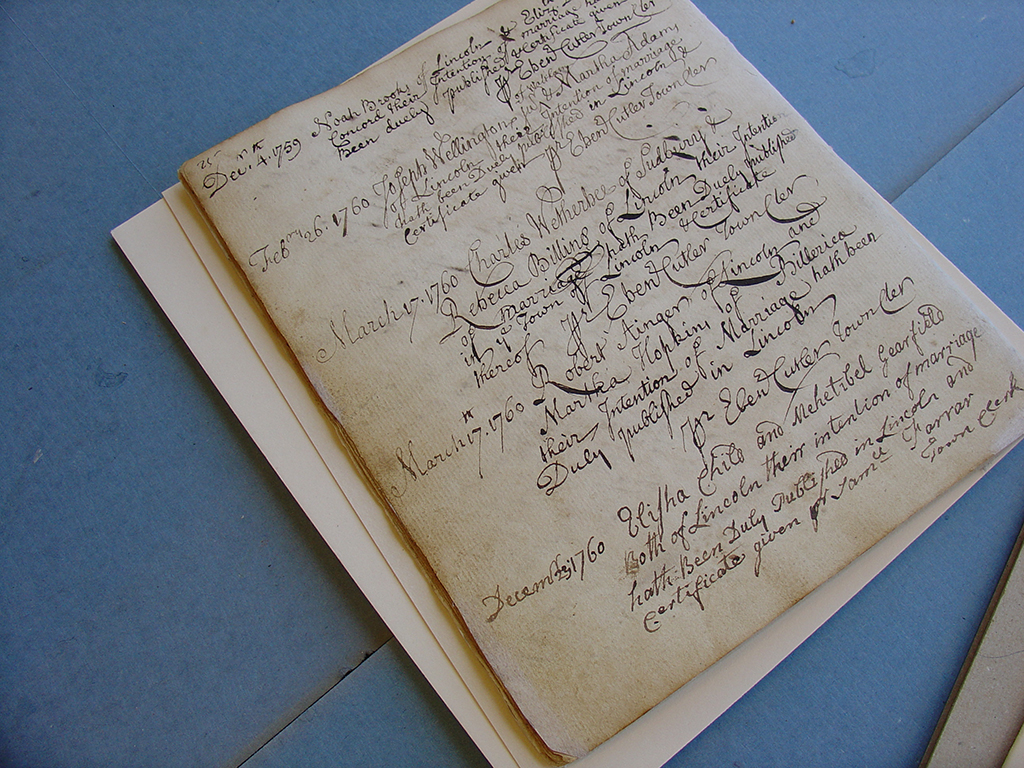 Decr. 4th. 1759 Noah Brooks of Lincoln & Eliz
Concord their Intention of marriage ha
Been duely published & Certificate given
pr Eben Cutler Town Cler
Febry 26. 1760 Joseph Wellington & Martha Adams
of Lincoln their Intention of marriage
hath been Duely published in Lincoln &
Certificate given pr Eben Cutler Town Cler
March 17. 1760 Charles Wetherbee of Sudbury &
Rebecca Billing of Lincoln their Intention
of marriage hath Been Duely published
in ye Town of Lincoln & Certificate
thereof pr Eben Cutler Town Cler
March 17th. 1760 Robert Ainger of Lincoln and
Martha Hopkins of Billerica
their Intention of Marriage hath been
Duly published in Lincoln
pr Eben Cutler Town Cler
Decembr 23 1760 Elisha Child and Mehetibel Gearfield
Both of Lincoln their intention of marriage
hath Been Duly Published in Lincoln and
Certificate given pr Samll Farrar
Town Clerk